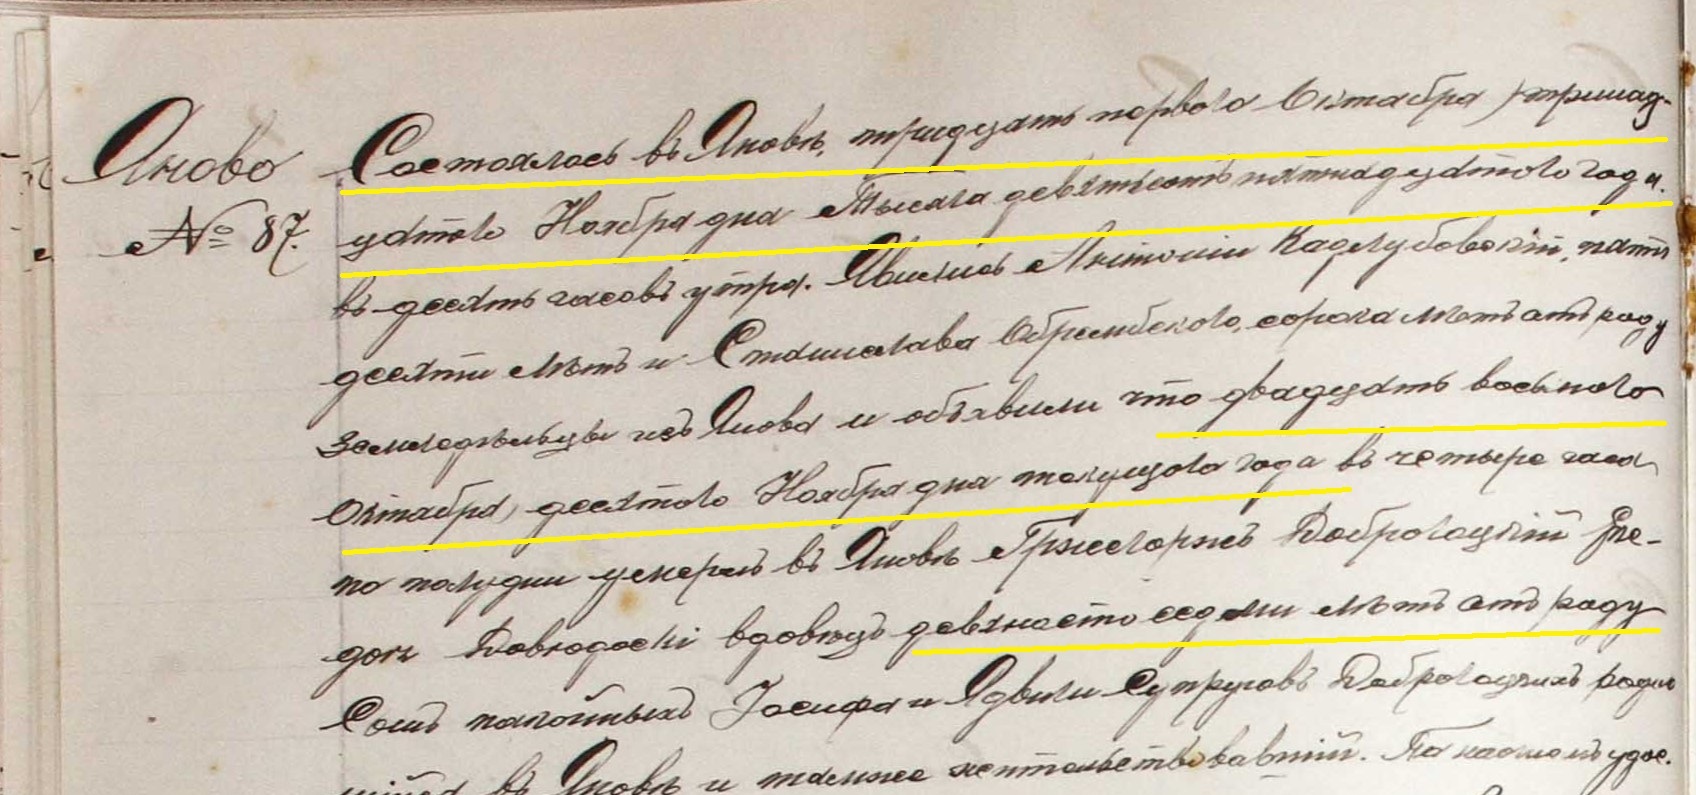 Яново
№ 87.
Состоялось въ Яновѣ, тридцать перваго Октября /тринад-
цатаго Ноября дня Тысяча девятьсотъ пятнадцатаго года.
въ десять часовъ утра. Явились Антоній Кадлубовскій, пяти
десяти лѣтъ и Станислава Обремbского, сорока лѣтъ отъ роду
земледѣльцы изъ Янова и объявили что двадцать восьмого
Октября) десятаго Ноября дня текущаго года въ четыре часа
по полудни умеръ въ Яновѣ Гржегоржъ Доброгоцкій Grze-
gorz Dobrogocki вдовецъ девяносто седми лѣтъ отъ роду
Сынъ покойныхъ Іосифа и Ядвиги Супруговъ Доброгоцкихъ родив
шійся въ Яновѣ и тамже жительствовавшій. По настоящ удос.